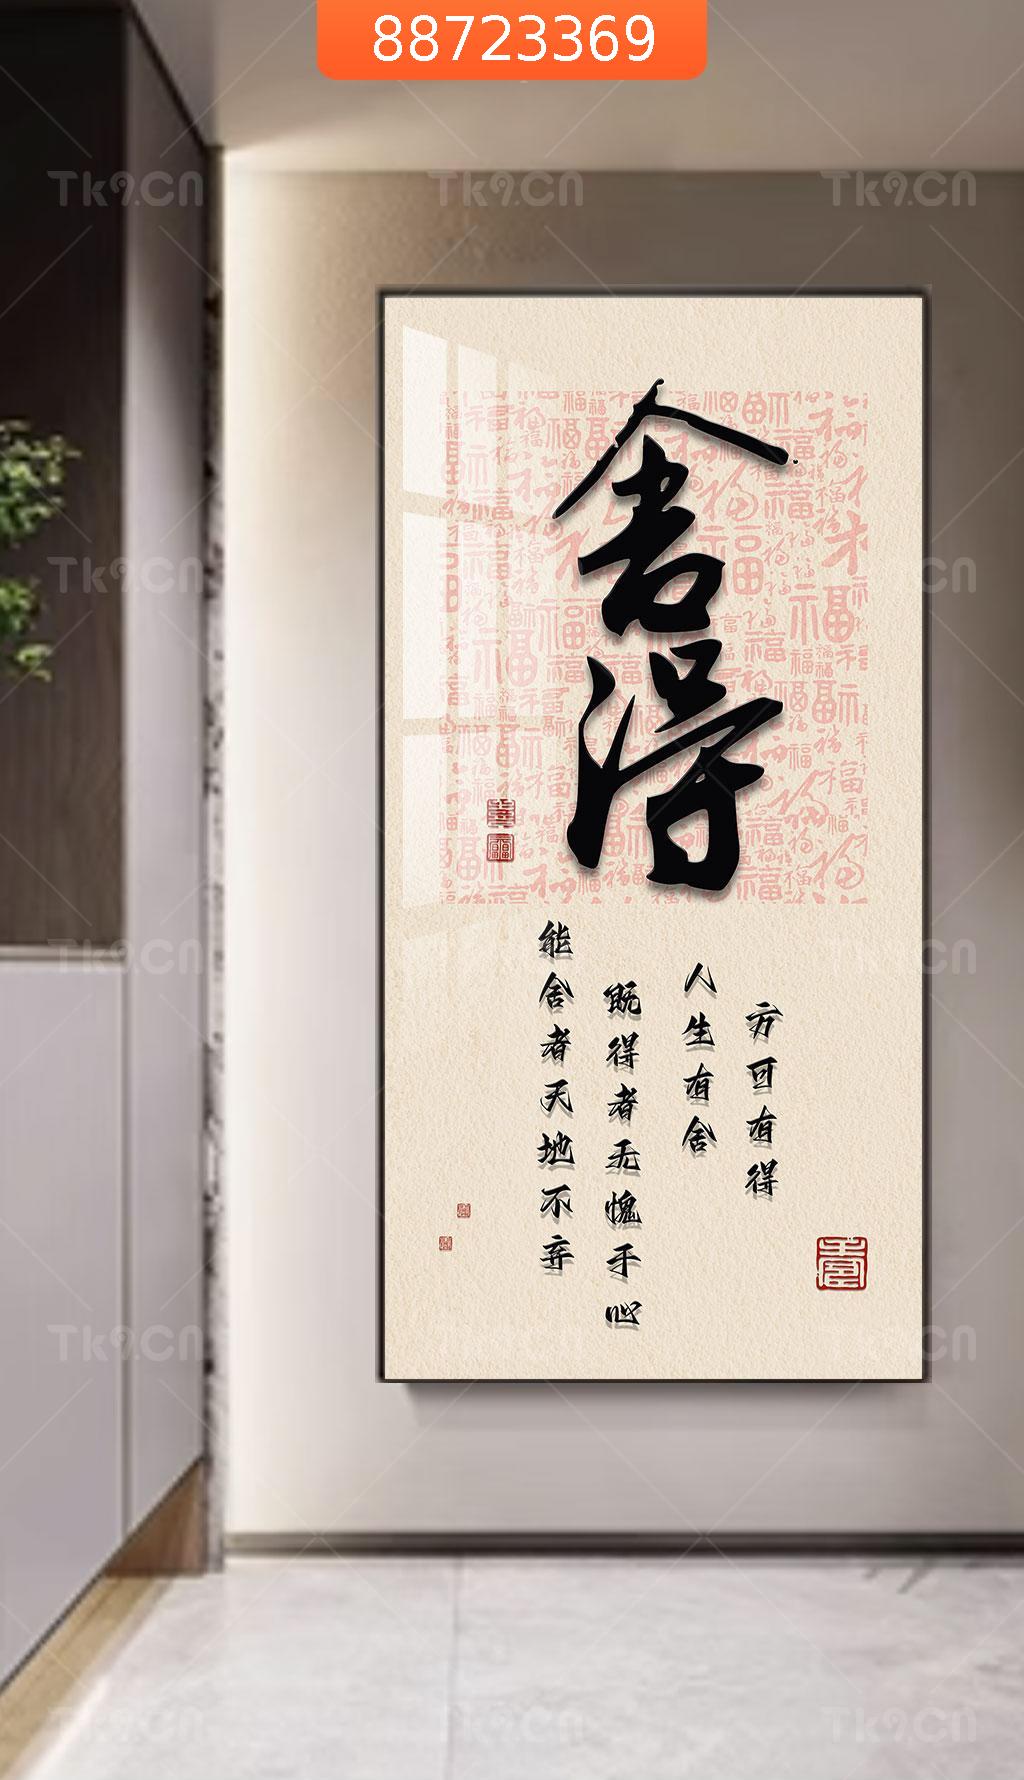 88723369
舍得
能舍者天地不弃
既得者无愧于心
人生有舍
方可有得
Tk9.CN